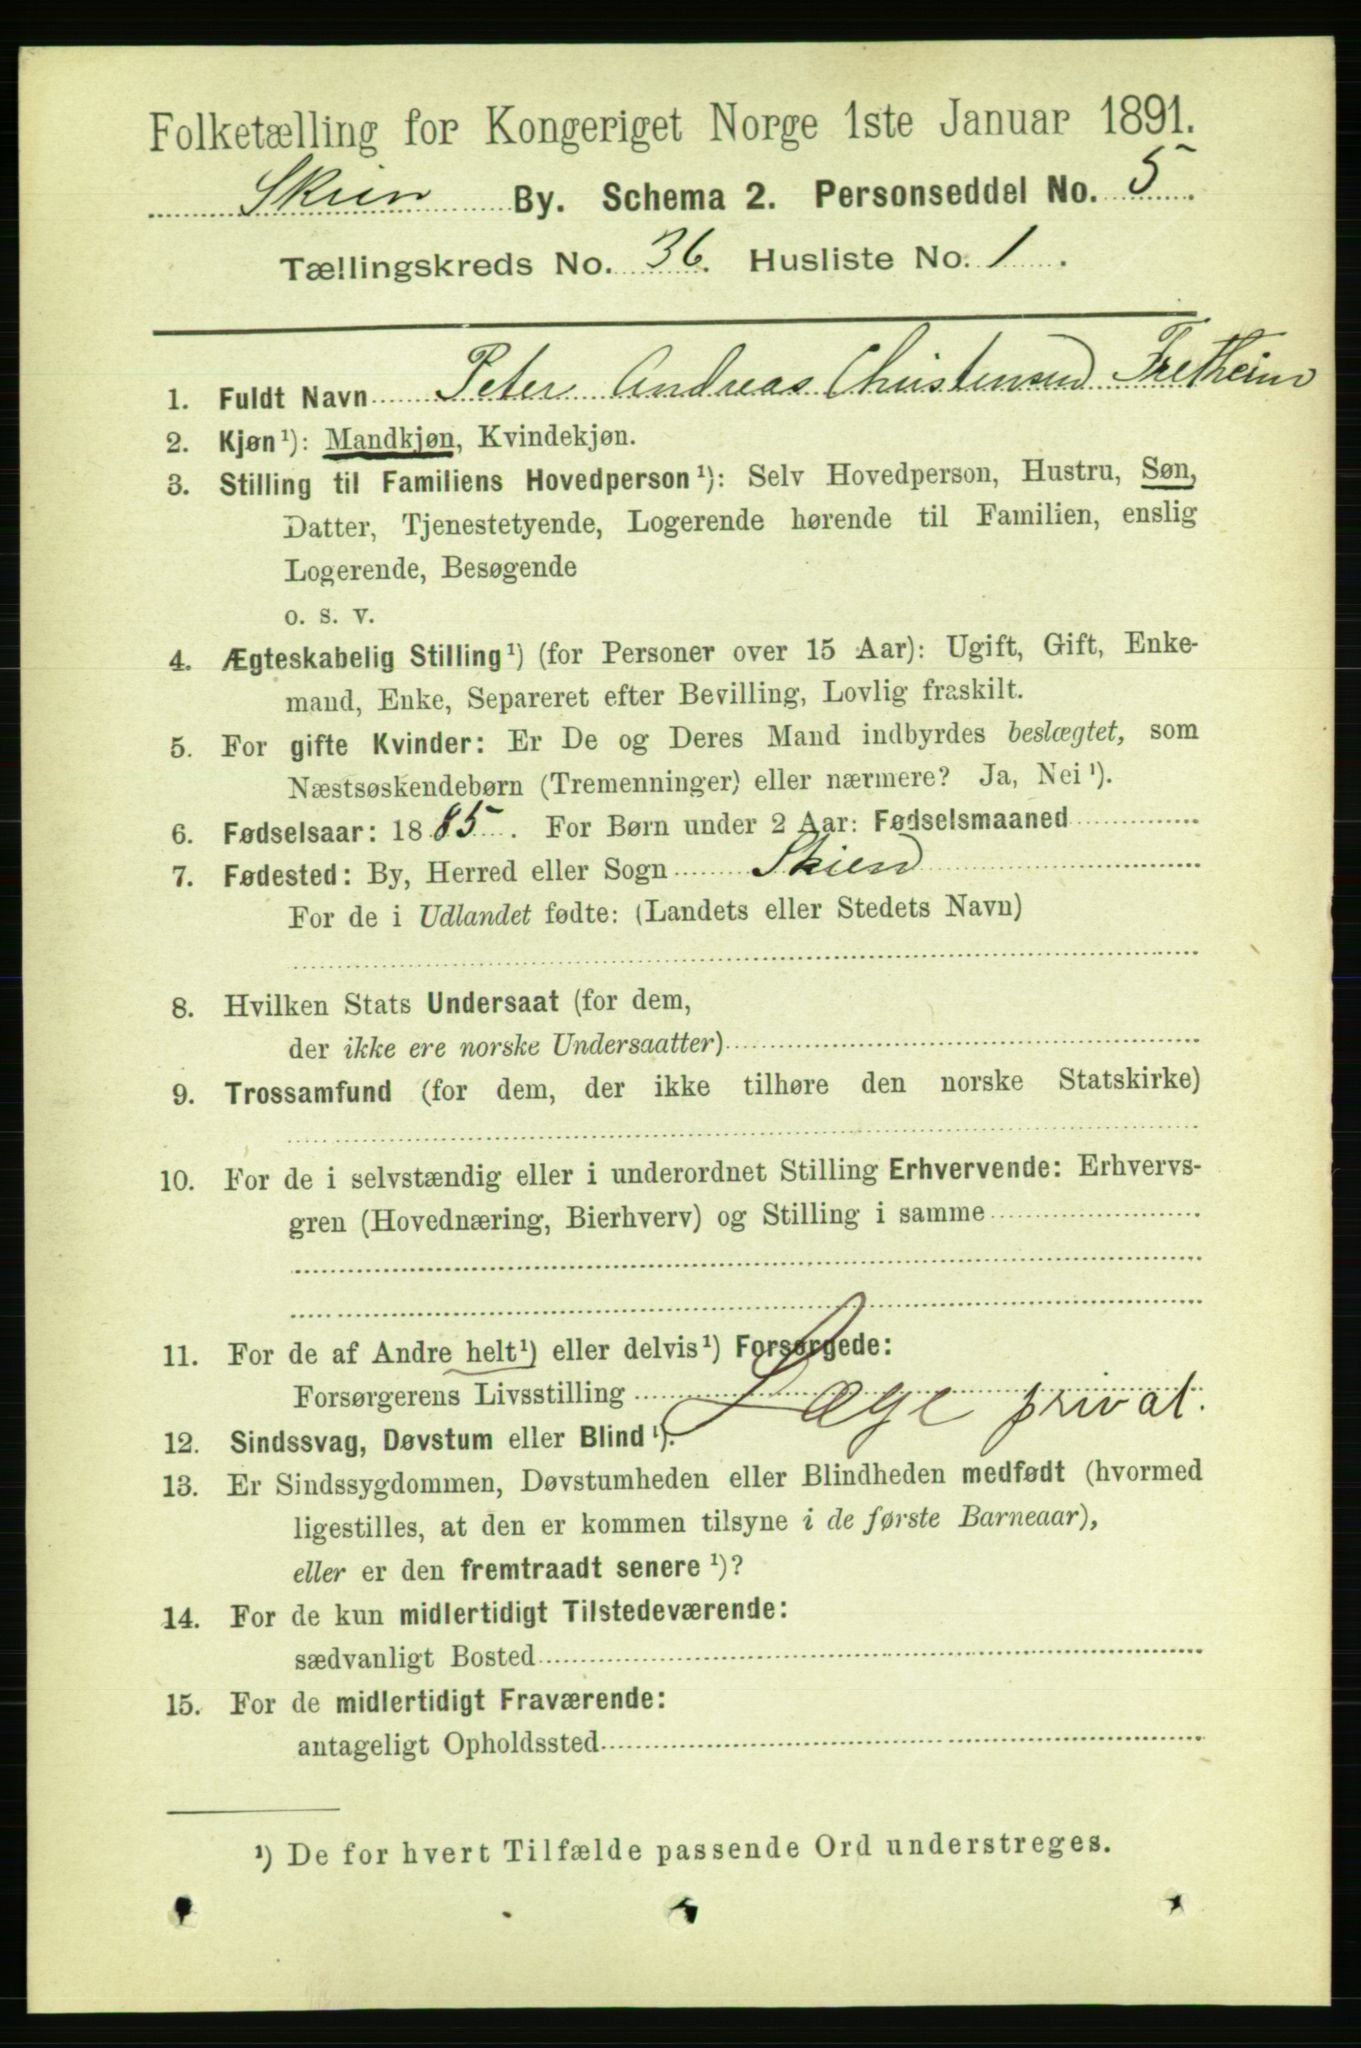 Folketælling for Kongeriget Norge 1ste Januar 1891.
Skien By. Schema 2. Personseddel No. 5.
Tællingskreds No. 36. Husliste No. 1.
1. Fuldt Navn Peter Andreas Christensen Fretheim
2. Kjøn¹): Mandkjøn, Kvindekjøn.
3. Stilling til Familiens Hovedperson¹): Selv Hovedperson, Hustru, Søn,
Datter, Tjenestetyende, Logerende hørende til Familien, enslig
Logerende, Besøgende
o. s. v.
4. Ægteskabelig Stilling¹) (for Personer over 15 Aar): Ugift, Gift, Enke-
mand, Enke, Separeret efter Bevilling, Lovlig fraskilt.
5. For gifte Kvinder: Er De og Deres Mand indbyrdes beslægtet, som
Næstsøskendebørn (Tremenninger) eller nærmere? Ja, Nei¹).
6. Fødselsaar: 1885. For Børn under 2 Aar: Fødselsmaaned
7. Fødested: By, Herred eller Sogn Skien
For de i Udlandet fødte: (Landets eller Stedets Navn)
8. Hvilken Stats Undersaat (for dem,
der ikke ere norske Undersaatter)
9. Trossamfund (for dem, der ikke tilhøre den norske Statskirke)
10. For de i selvstændig eller i underordnet Stilling Erhvervende: Erhvervs-
gren (Hovednæring, Bierhverv) og Stilling i samme
11. For de af Andre helt¹) eller delvis¹) Forsørgede:
Forsørgerens Livsstilling Læge privat.
12. Sindssvag, Døvstum eller Blind¹).
13. Er Sindssygdommen, Døvstumheden eller Blindheden medfødt (hvormed
ligestilles, at den er kommen tilsyne i de første Barneaar),
eller er den fremtraadt senere¹)?
14. For de kun midlertidigt Tilstedeværende:
sædvanligt Bosted
15. For de midlertidigt Fraværende:
antageligt Opholdssted
¹) De for hvert Tilfælde passende Ord understreges.